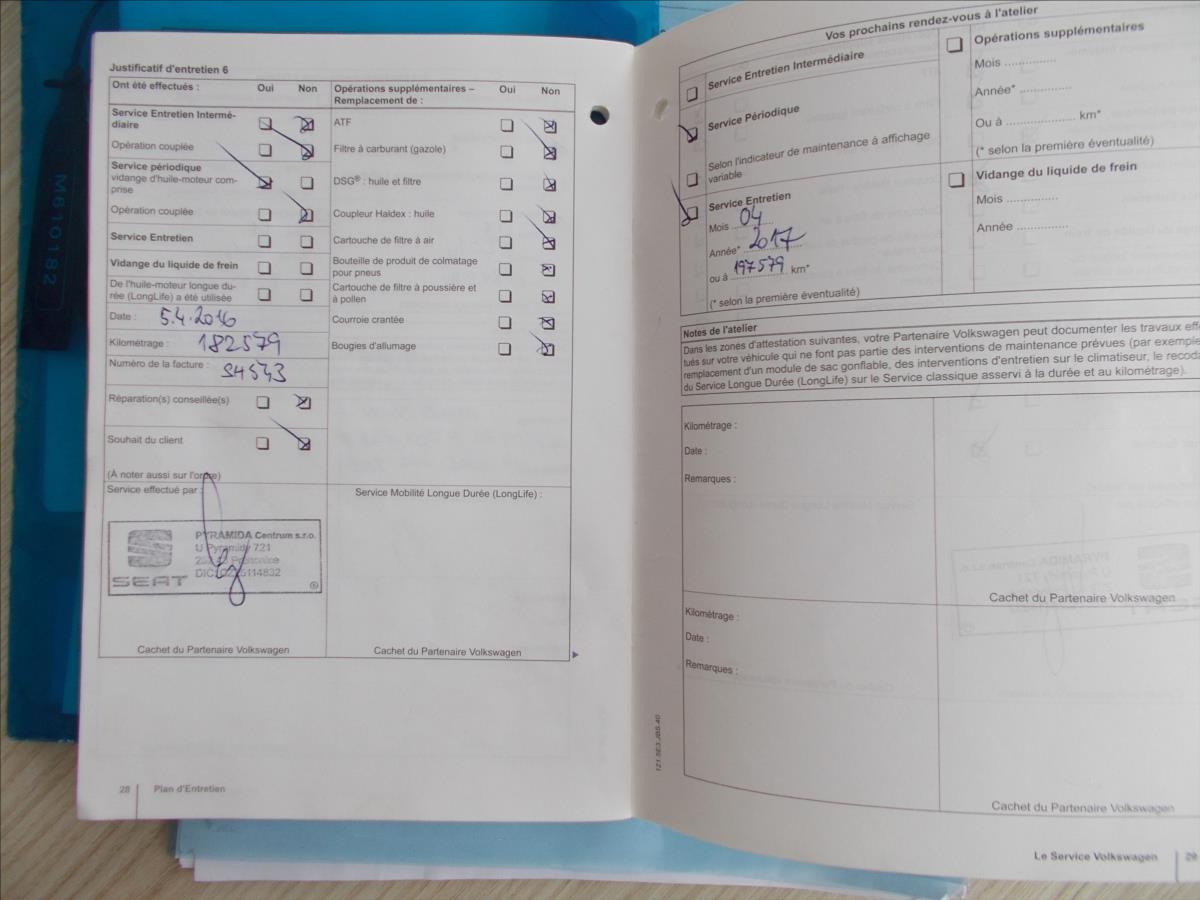 M610182
Justificatif d'entretien 6
Ont été effectués :
Oui
Non
Service Entretien Intermé-
diaire
Opération couplée
Service périodique
vidange d'huile-moteur com-
prise
Opération couplée
Service Entretien
Vidange du liquide de frein
De l'huile-moteur longue du-
rée (LongLife) a été utilisée
Date : 5.4.2016
Kilométrage : 182579
Numéro de la facture :
Réparation(s) conseillée(s)
Souhait du client
(À noter aussi sur l'ordre)
Service effectué par :
PYRAMIDA Centrum s.r.o.
U Pyramidy 721
SEAT
Cachet du Partenaire Volkswagen
Opérations supplémentaires –
Remplacement de :
Oui
Non
ATF
Filtre à carburant (gazole)
DSG® : huile et filtre
Coupleur Haldex : huile
Cartouche de filtre à air
Bouteille de produit de colmatage
pour pneus
Cartouche de filtre à poussière et
à pollen
Courroie crantée
Bougies d'allumage
Service Mobilité Longue Durée (LongLife) :
Cachet du Partenaire Volkswagen
28
Plan d'Entretien
Vos prochains rendez-vous à l'atelier
Service Entretien Intermédiaire
Service Périodique
Selon l'indicateur de maintenance à affichage
variable
Service Entretien
Mois 04
Année* 2017
ou à 197579 km*
(* selon la première éventualité)
Opérations supplémentaires
Mois ...............
Année* ...............
Ou à .................... km*
(* selon la première éventualité)
Vidange du liquide de frein
Mois ...............
Année ...............
Notes de l'atelier
Dans les zones d'attestation suivantes, votre Partenaire Volkswagen peut documenter les travaux effe
tués sur votre véhicule qui ne font pas partie des interventions de maintenance prévues (par exemple
remplacement d'un module de sac gonflable, des interventions d'entretien sur le climatiseur, le recoda
du Service Longue Durée (LongLife) sur le Service classique asservi à la durée et au kilométrage).
Kilométrage :
Date :
Remarques :
Cachet du Partenaire Volkswagen
Kilométrage :
Date :
Remarques :
Cachet du Partenaire Volkswagen
121.5E3.JBS.40
Le Service Volkswagen
29